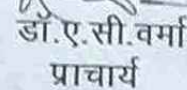 डॉ.ए.सी.वर्मा
प्राचार्य